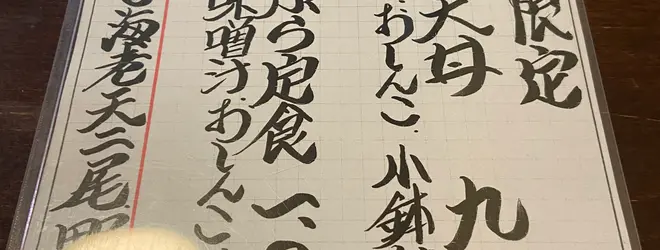 限定
天丼 九
おしんこ、小鉢
ぷら定食 一、
味噌汁、おしんこ
海老天二尾